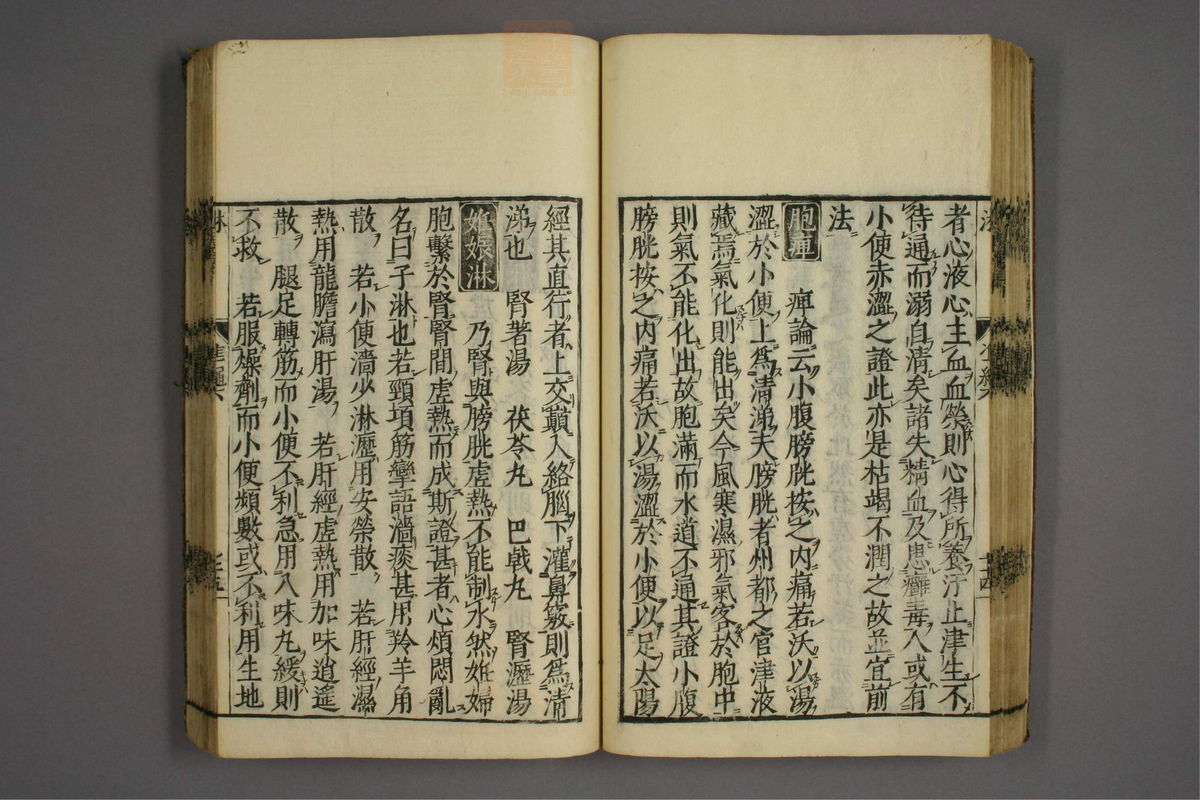 者心液心主血血榮則心得所養汗止津生不
待通而溺自清矣諸失精血及患癰毒人或有
小便赤澀之證此亦是枯竭不潤之故並宜前
法
胞痺 痺論云小腹膀胱按之內痛若沃以湯
澀於小便上爲清涕夫膀胱者州都之官津液
藏焉氣化則能出矣今風寒濕邪氣客於胞中
則氣不能化出故胞滿而水道不通其證小腹
膀胱按之內痛若沃以湯澀於小便以足太陽
經其直行者上交巔入絡腦下灌鼻竅則爲清
涕也 腎著湯 茯苓丸 巴戟丸 腎瀝湯
妊娠淋 乃腎與膀胱虛熱不能制水然妊婦
胞繫於腎腎間虛熱而成斯證甚者心煩悶亂
名曰子淋也若頸項筋攣語澀痰甚用羚羊角
散 若小便澀少淋瀝用安榮散 若肝經濕
熱用龍膽瀉肝湯 若肝經虛熱用加味逍遥
散 腿足轉筋而小便不利急用八味丸緩則
不救 若服燥劑而小便頻數或不利用生地